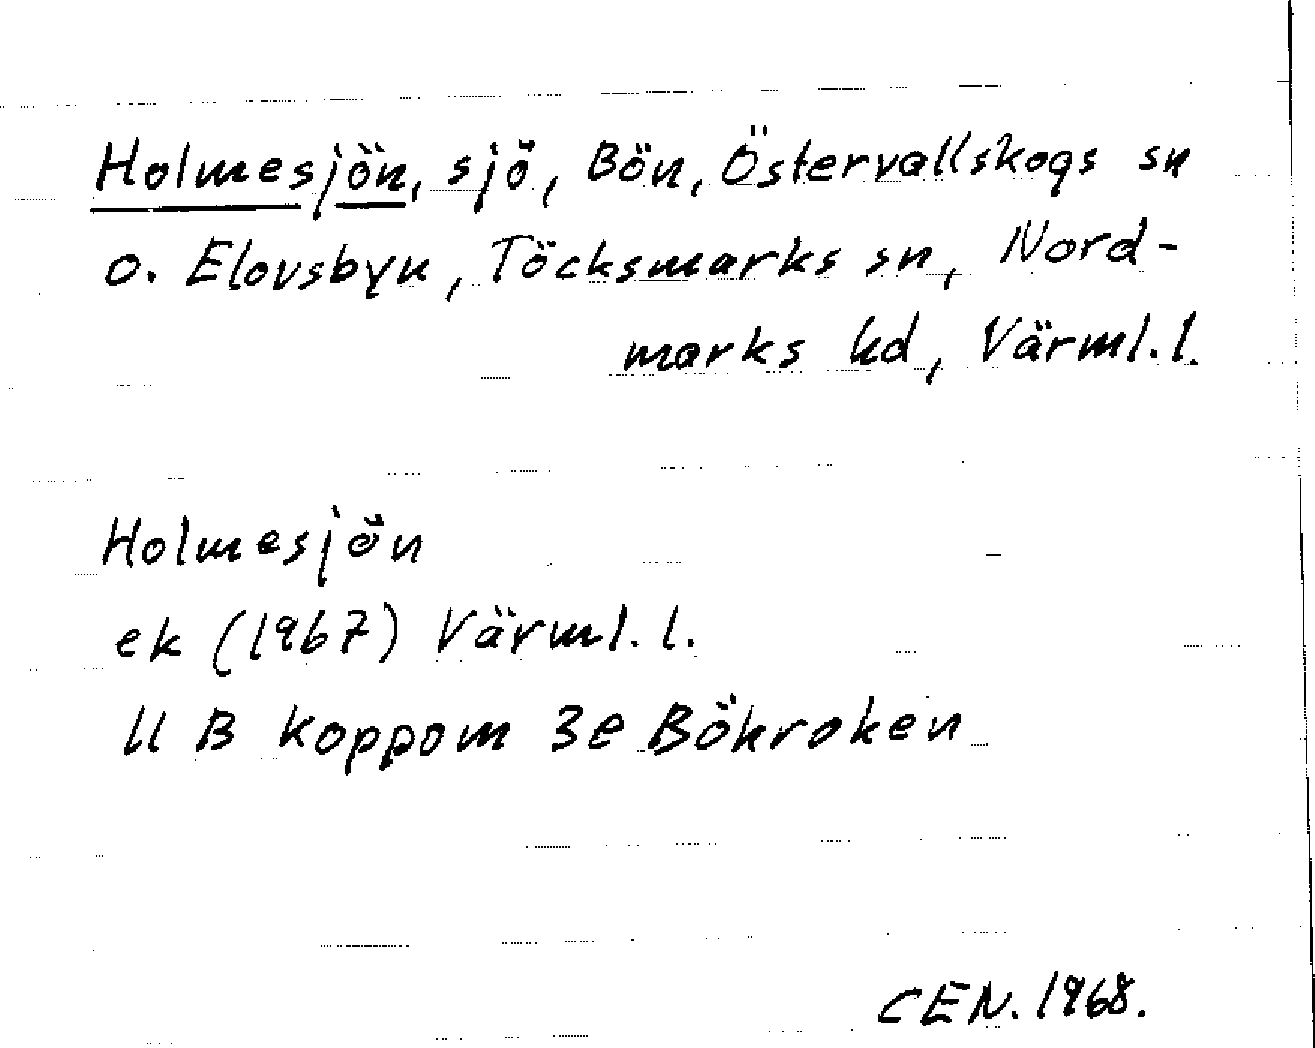 Holmesjön, sjö, Bön, Östervallskogs sn
o. Elovsbyn, Töcksmarks sn, Nord-
marks hd, Värml.l.
Holmesjön
ek (1967) Värml.l.
11 B Koppom 3e Bökroken
CEN. 1968.